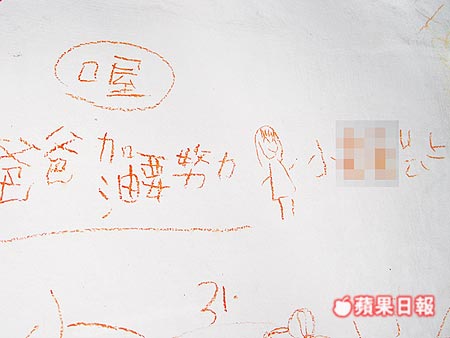 喔
爸爸加油要努力 小
31.
蘋果日報